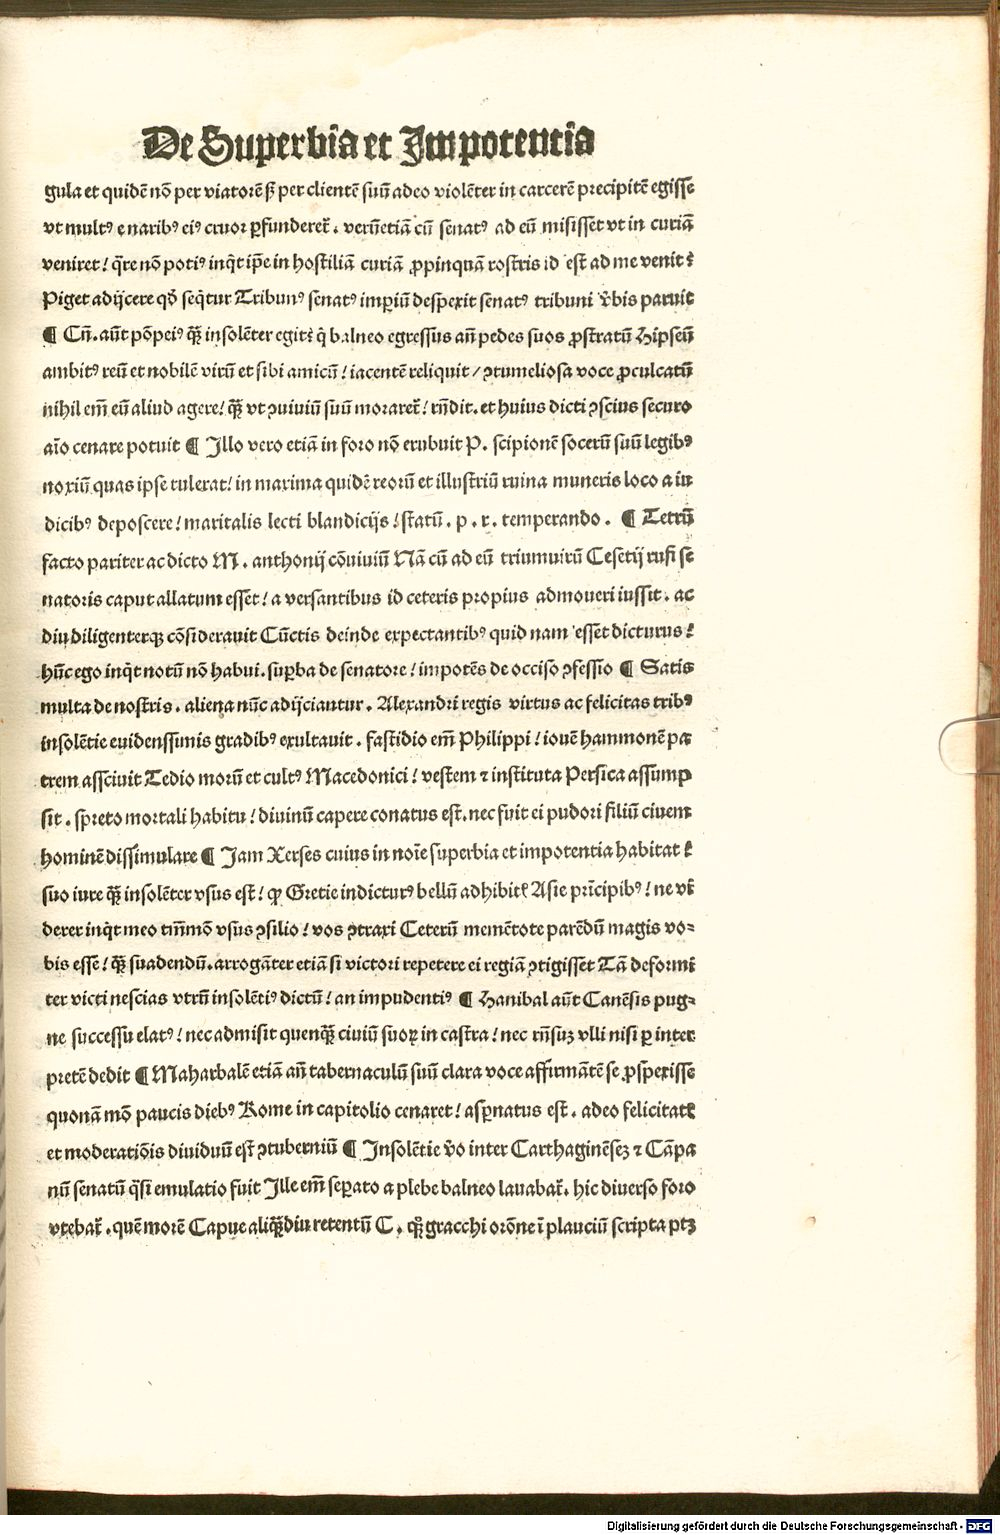 De Superbia et Impotentia
gula et quidē nō per viatorē sꝫ per clientē suū adeo violēter in carcerē precipitē egisse
vt multꝰ e naribꝰ eiꝰ cruor ꝑfunderet᷑ . verūetiā cū senatꝰ ad eū misisset vt in curiā
veniret / q̄re nō potiꝰ inq̄t ip̄e in hostiliā curiā ꝓpinquā rostris id est ad me venit ?
Piget adijcere qd̄ seq̄tur Tribunꝰ senatꝰ imꝑiū despexit senatꝰ tribuni v̄bis paruit
¶ Cn̄. aūt pōpeiꝰ qͣꝫ insolēter egit ? q̄ balneo egressus an̄ pedes suos ꝓstratū Hipseū
ambitꝰ reū et nobilē virū et sibi amicū / iacentē reliquit / ꝯtumeliosa voce ꝓculcatū
nihil em̄ eū aliud agere / qͣꝫ vt ꝯuiuiū suū moraret᷑ / rn̄dit . et huius dicti ꝯscius securo
aīo cenare potuit ¶ Illo vero etiā in foro nō erubuit P. scipionē socerū suū legibꝰ
noxiū quas ipse tulerat / in maxima quidē reorū et illustriū ruina muneris loco a iu
dicibꝰ deposcere / maritalis lecti blandicijs / statū . p . r . temperando . ¶ Tetrū
facto pariter ac dicto M . anthonij cōviuiū Nā cū ad eū triumuirū Cesetij rufi se
natoris caput allatum esset / a versantibus id ceteris propius admoueri iussit . ac
diu diligenterqꝫ cōsiderauit Cūctis deinde expectantibꝰ quid nam esset dicturus ?
hūc ego inq̄t notū nō habui . suꝑba de senatore / impotēs de occiso ꝯfessio ¶ Satis
multa de nostris . aliena nūc adijciantur . Alexandri regis virtus ac felicitas tribꝰ
insolētie euidenssimis gradibꝰ exultauit . fastidio em̄ Philippi / iouē hammonē pa
trem assciuit Tedio morū et cultꝰ Macedonici / vestem ⁊ instituta Persica assump
sit . spreto mortali habitu / diuinū capere conatus est . nec fuit ei pudori filiū ciuem
hominē dissimulare ¶ Jam Xerses cuius in noīe superbia et impotentia habitat ?
suo iure qͣꝫ insolēter vsus est / ꝙ Gretie indicturꝰ bellū adhibitꝭ Asie prīcipibꝰ / ne vi
derer inq̄t meo tm̄mō vsus ꝯsilio / vos ꝯtraxi Ceterū memētote parēdū magis vo-
bis esse / qͣꝫ suadendū . arrogāter etiā si victori repetere ei regiā ꝯtigisset Tā deformi
ter victi nescias vtrū insolētiꝰ dictū / an impudentiꝰ ¶ Hanibal aūt Canēsis pug-
ne successu elatꝰ / nec admisit quenqͣꝫ ciuiū suoꝝ in castra / nec rn̄suꝫ vlli nisi ꝑ inter
pretē dedit ¶ Maharbalē etiā an̄ tabernaculū suū clara voce affirmātē se ꝓspexisse
quonā mō paucis diebꝰ Rome in capitolio cenaret / asꝑnatus est . adeo felicitatꝭ
et moderatiōis diuiduū est ꝯtuberniū ¶ Insolētie v̄o inter Carthaginēseꝫ ⁊ Cāpa
nū senatū q̄si emulatio fuit Ille em̄ seꝑato a plebe balneo lauabat᷑ . hic diuerso foro
vtebat᷑ . quē morē Capue aliqͣꝫdiu retentū C . qͣꝫ gracchi orōne ī plauciū scripta ptꝫ
Digitalisierung gefördert durch die Deutsche Forschungsgemeinschaft - DFG